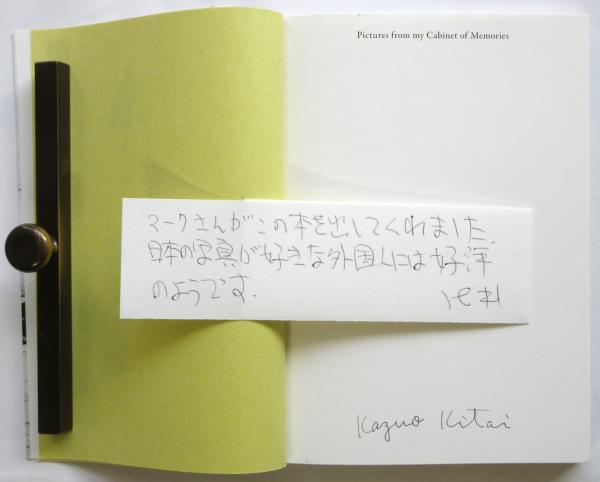 Pictures from my Cabinet of Memories
マークさんがこの本を出してくれました.
日本の写真が好きな外国人には好評
のようです.
北井
Kazuo Kitai